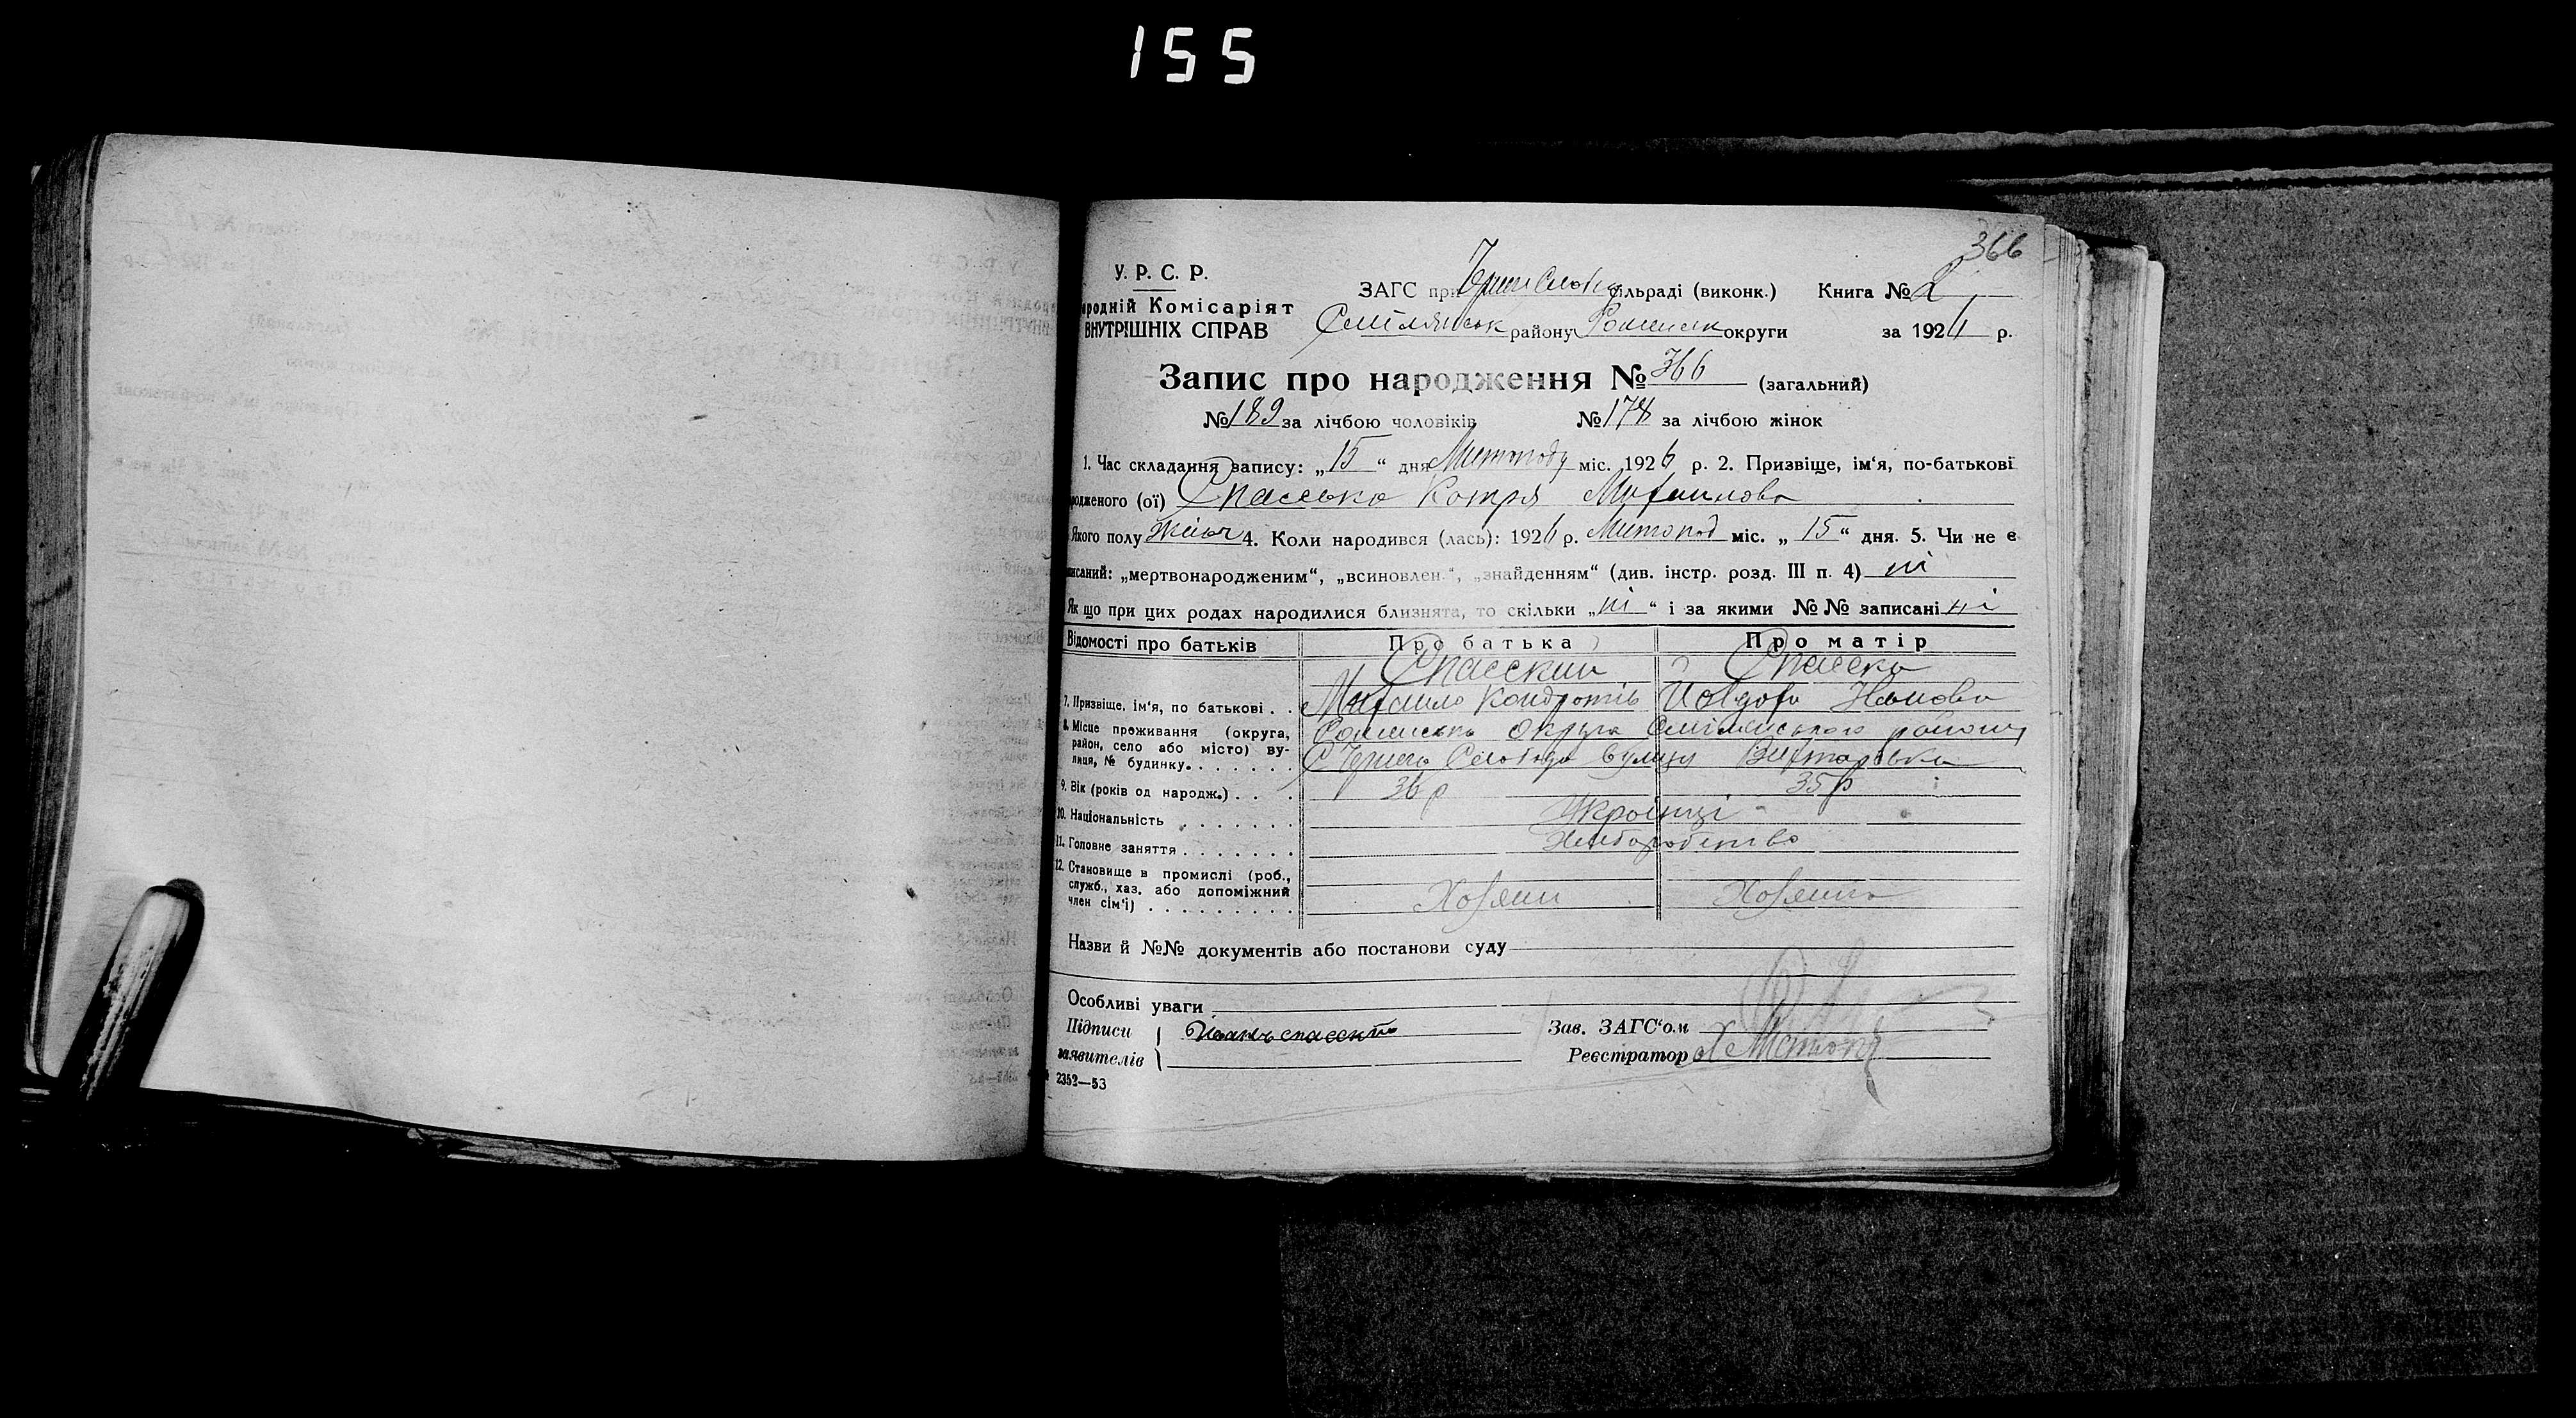 155
366
У. Р. С. Р.
ЗАГС при Черн Слобід сільраді (виконк.) Книга № 2
ародній Комісаріят
ВНУТРІШНІХ СПРАВ
Смілянськ району Роменськ округи за 1926 р.
Запис про народження № 366 (загальний)
№ 189 за лічбою чоловіків № 178 за лічбою жінок
1. Час складання запису: „15“ дня Листопаду міс. 1926 р. 2. Призвіще, ім‘я, по-батькові
родженого (ої) Спаська Котря Михаилова
Якого полу жіноч 4. Коли народився (лась): 1926 р. Листопад міс. „15“ дня. 5. Чи не є
писаний: „мертвонародженим“, „всиновлен.“, „знайденням“ (див. інстр. розд. III п. 4) ні
Як що при цих родах народилися близнята, то скільки „ні“ і за якими №№ записані ні
Відомості про батьків Про батька Про матір
Спасский Спасска
7. Призвіще, ім‘я, по батькові . . Михаило Кондротів Іванова
8. Місце проживання (округа, район, село або місто) ву-лиця, № будинку. . . . . . . Роменська округа Смілянського району
С Чернеча Слобода вулиця
9. Вік (років од народж.) . . . 36 р 35 р
10. Національність . . . . . . . Україњці
11. Головне заняття . . . . . . . Хлиборобство
12. Становище в промислі (роб.,
служб., хаз. або допоміжний
член сім‘ї) . . . . . . . . . Хозяин Хозяйка
Назви й №№ документів або постанови суду
Особливі уваги
Підписи Иванъ спаскй Зав. ЗАГС‘ом
заявителів Реєстратор
2352—53